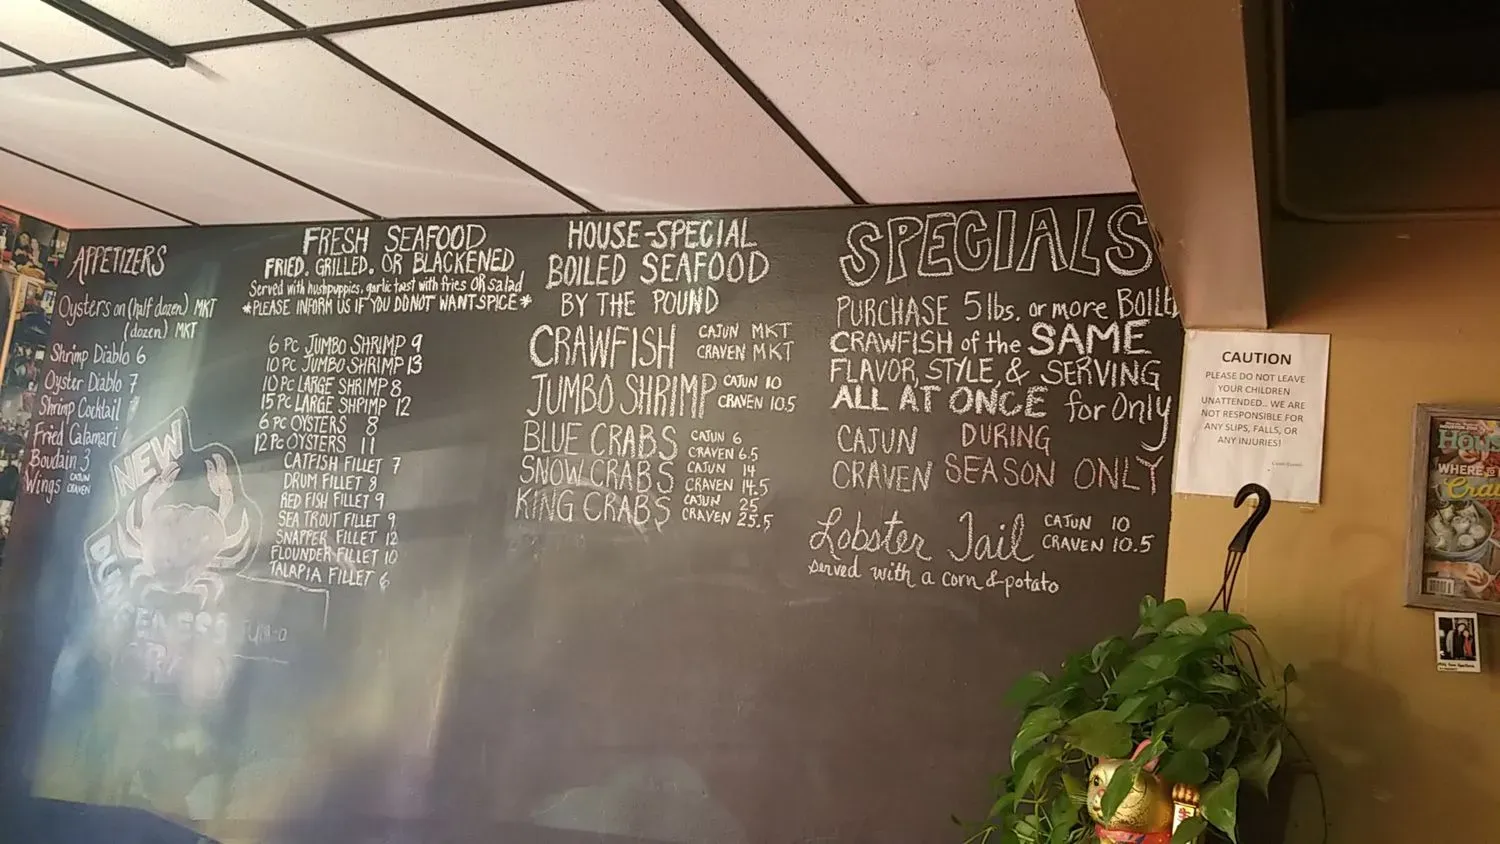 APPETIZERS
Oysters on (half dozen) MKT
(dozen) MKT
Shrimp Diablo 6
Oyster Diablo 7
Shrimp Cocktail
Fried Calamari
Boudain 3
Wings CAJUN
CRAVEN
NEW
FRESH SEAFOOD
FRIED, GRILLED, OR BLACKENED
Served with hushpuppies, garlic toast with fries OR salad
*PLEASE INFORM US IF YOU DO NOT WANT SPICE*
6 PC JUMBO SHRIMP 9
10 PC JUMBO SHRIMP 13
10 PC LARGE SHRIMP 8
15 PC LARGE SHRIMP 12
6 PC OYSTERS 8
12 PC OYSTERS 11
CATFISH FILLET 7
DRUM FILLET 8
RED FISH FILLET 9
SEA TROUT FILLET 9
SNAPPER FILLET 12
FLOUNDER FILLET 10
TALAPIA FILLET 6
HOUSE-SPECIAL
BOILED SEAFOOD
BY THE POUND
CRAWFISH CAJUN MKT
CRAVEN MKT
JUMBO SHRIMP CAJUN 10
CRAVEN 10.5
BLUE CRABS CAJUN 6
CRAVEN 6.5
SNOW CRABS CAJUN 14
CRAVEN 14.5
KING CRABS CAJUN 25
CRAVEN 25.5
SPECIALS
PURCHASE 5 lbs. or more BOILED
CRAWFISH of the SAME
FLAVOR, STYLE, & SERVING
ALL AT ONCE for Only
CAJUN DURING
CRAVEN SEASON ONLY
Lobster Tail CAJUN 10
CRAVEN 10.5
served with a corn & potato
CAUTION
PLEASE DO NOT LEAVE
YOUR CHILDREN
UNATTENDED... WE ARE
NOT RESPONSIBLE FOR
ANY SLIPS, FALLS, OR
ANY INJURIES!
WHERE